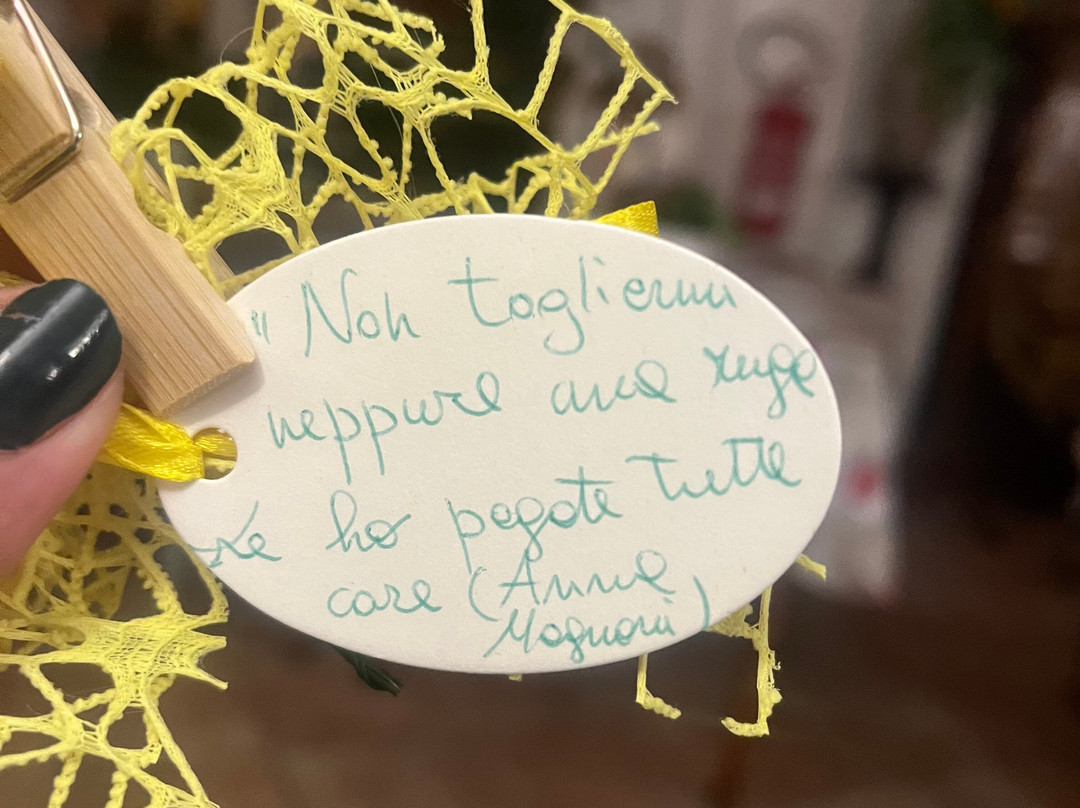 " Non togliermi
neppure una ruga
Le ho pagate tutte
care (Anna
Magnani)